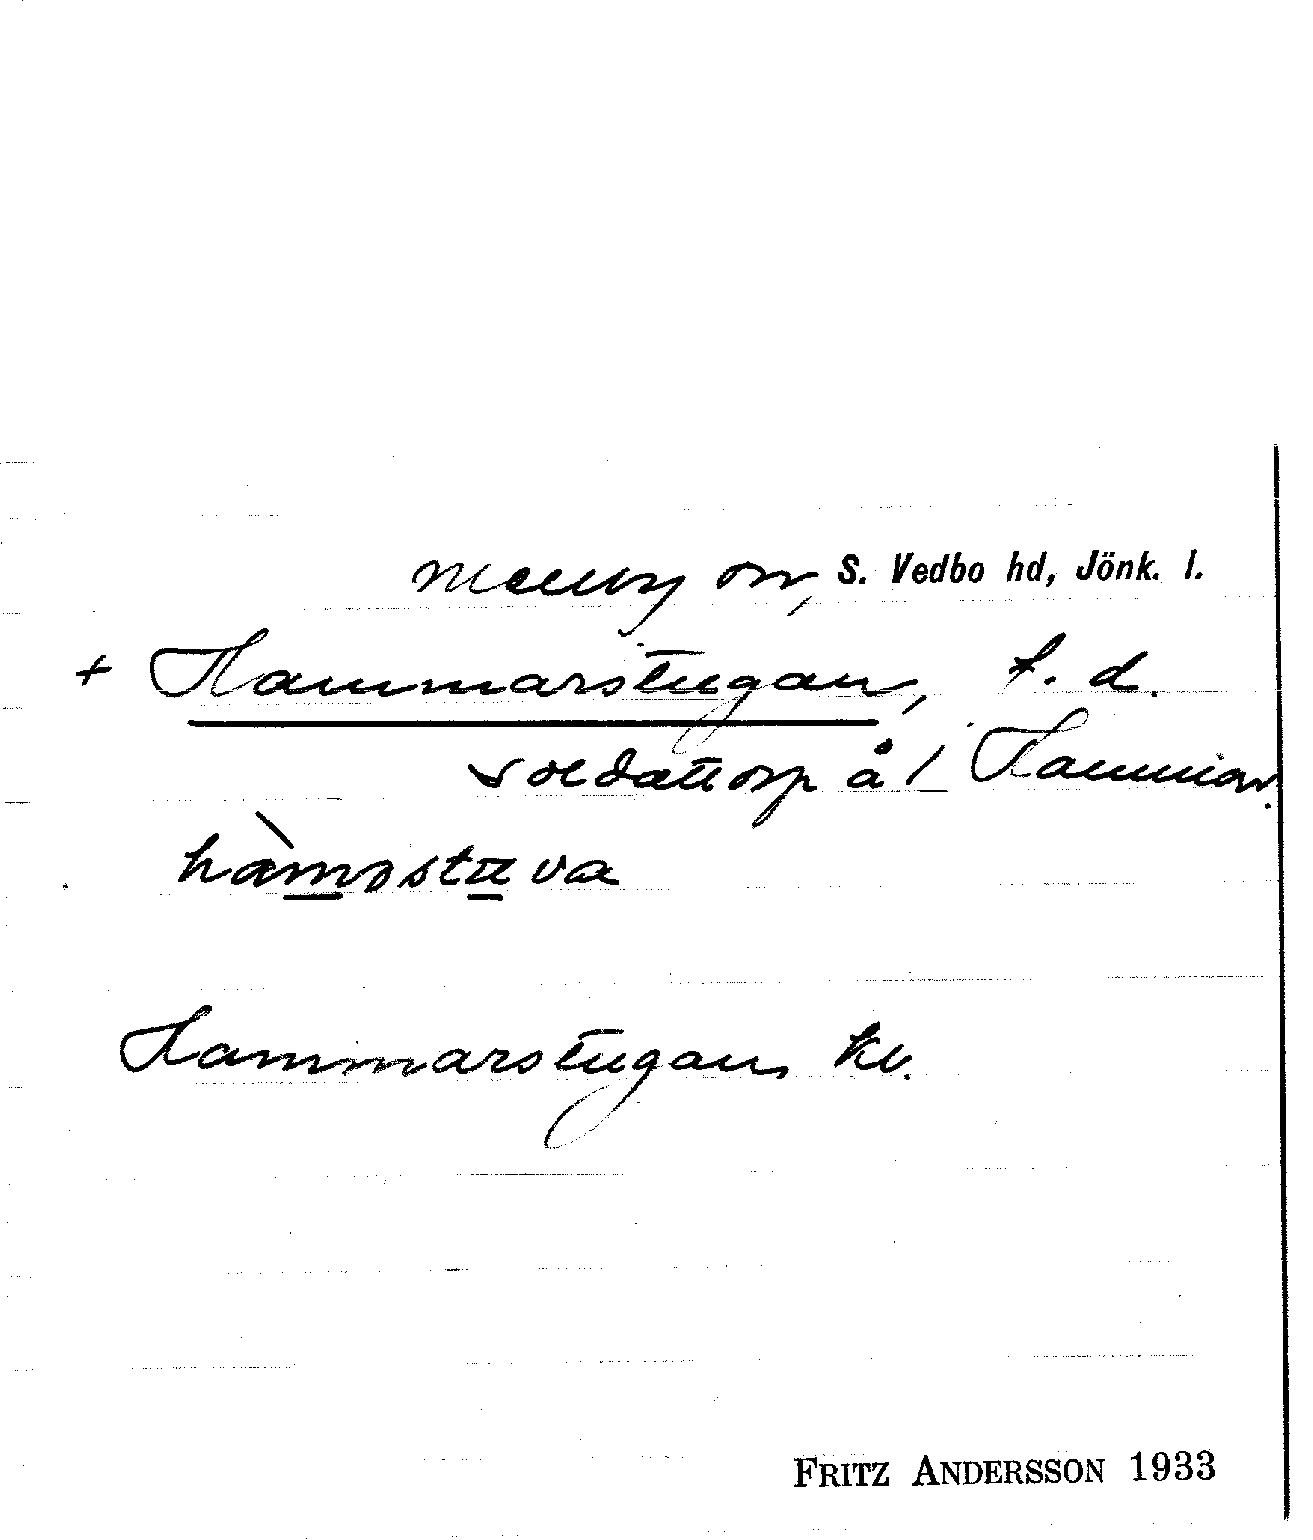 Mellby sn, S. Vedbo hd, Jönk. l.
+ Hammarstugan, f. d.
soldattorp å 1 Hammar.
hàmɒstu̅va
Hammarstugan kv.
FRITZ ANDERSSON 1933